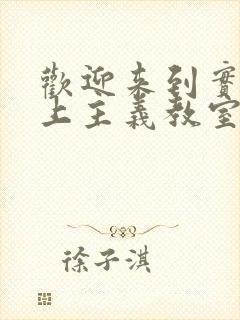 歡迎来到實
上主義教室
徐子淇